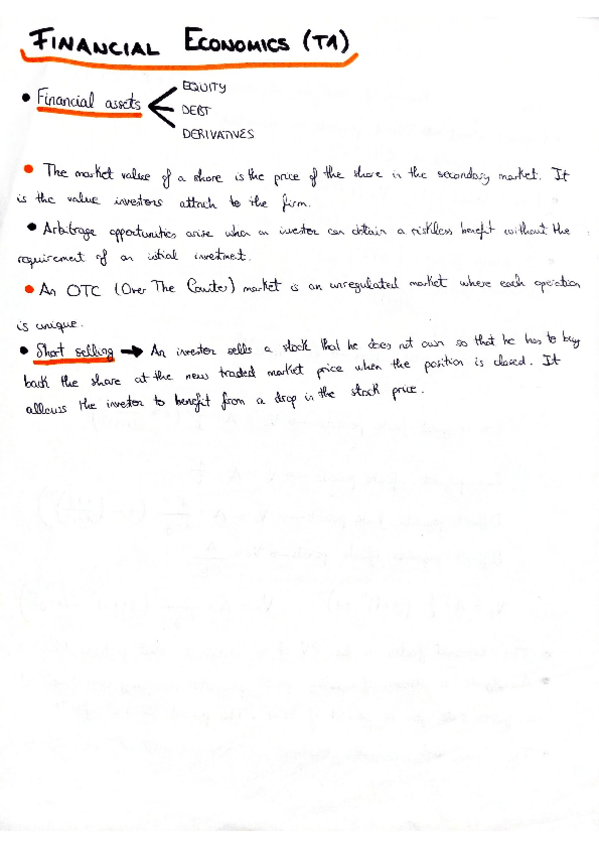 FINANCIAL ECONOMICS (T1)
• Financial assets
EQUITY
DEBT
DERIVATIVES
• The market value of a share is the price of the share in the secondary market. It
is the value investors attach to the firm.
• Arbitrage opportunities arise when an investor can obtain a riskless benefit without the
requirement of an initial investment.
• An OTC (Over The Counter) market is an unregulated market where each operation
is unique.
• Short selling → An investor sells a stock that he does not own so that he has to buy
back the share at the new traded market price when the position is closed. It
allows the investor to benefit from a drop in the stock price.